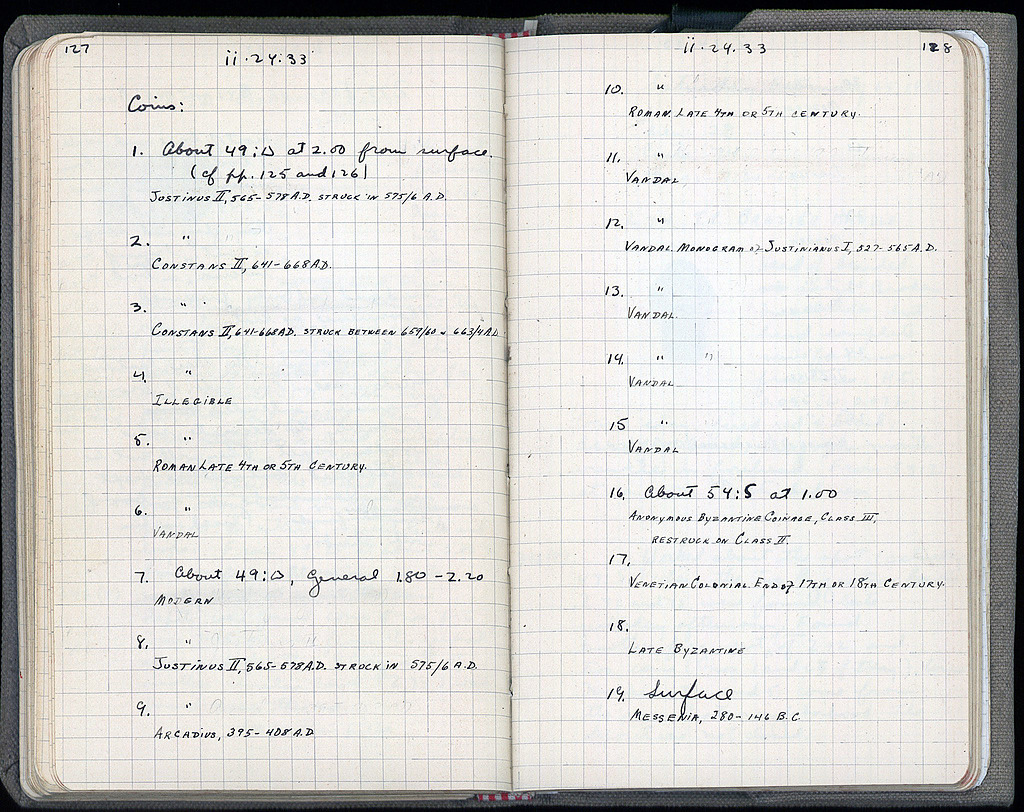 127
ii·24·33
Coins:
1. About 49:Δ at 2.00 from surface.
(cf pp. 125 and 126)
JUSTINUS II, 565-578 A.D. STRUCK IN 575/6 A.D.
2. "
CONSTANS II, 641-668 A.D.
3. "
CONSTANS II, 641-668 A.D. STRUCK BETWEEN 659/60 & 663/4 A.D.
4. "
ILLEGIBLE
5. "
ROMAN LATE 4TH OR 5TH CENTURY.
6. "
VANDAL
7. About 49:Δ, general 1.80-2.20
MODERN
8. "
JUSTINUS II, 565-578 A.D. STRUCK IN 575/6 A.D.
9. "
ARCADIUS, 395-408 A.D
ii·24·33
128
10. "
ROMAN. LATE 4TH OR 5TH CENTURY.
11. "
VANDAL
12. "
VANDAL. MONOGRAM of JUSTINIANUS I, 527-565 A.D.
13. "
VANDAL
14. " "
VANDAL
15 "
VANDAL
16. About 54:S at 1.00
ANONYMOUS BYZANTINE COINAGE, CLASS III,
RESTRUCK ON CLASS II.
17.
VENETIAN COLONIAL. END of 17TH OR 18TH CENTURY.
18.
LATE BYZANTINE
19. Surface
MESSENIA, 280-146 B.C.